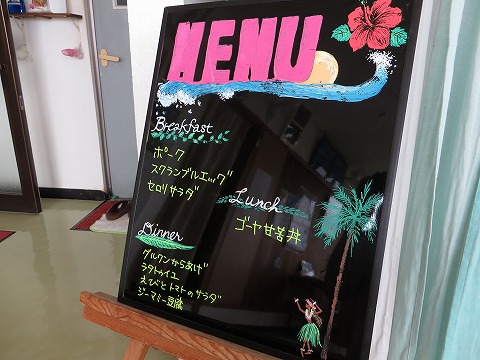 MENU
Breakfast
ポーク
スクランブルエッグ
セロリサラダ
Lunch
ゴーヤ甘苦丼
Dinner
グルクンからあげ
ラタトゥイユ
えびとトマトのサラダ
ジーマミー豆腐